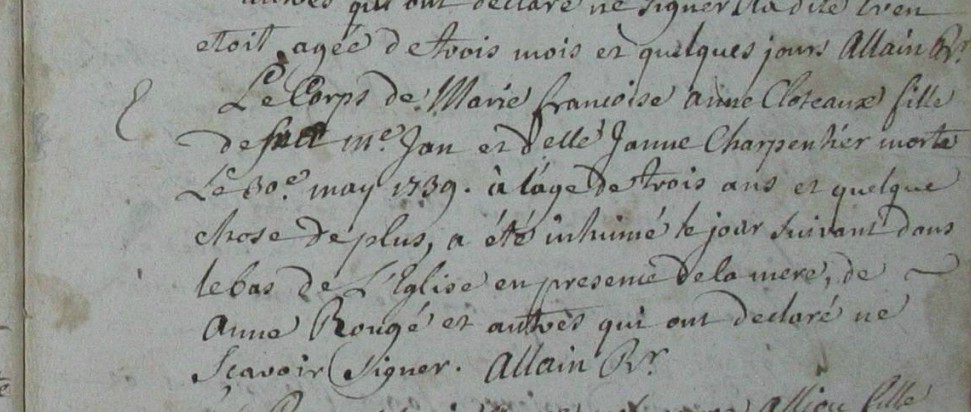 autres qui ont declaré ne signer la dite
etoit agée de trois mois et quelques jours Allain Rr.
Le Corps de Marie francoise anne Cloteaux fille
de feu me. Jan et delle Janne Charpentier morte
Le 30e may 1739. à lage de trois ans et quelque
chose de plus, a été inhumé le jour suivant dans
le bas de L'Eglise en presence de la mere, de
Anne Rougé et autres qui ont declaré ne
Sçavoir Signer. Allain Rr.
fille